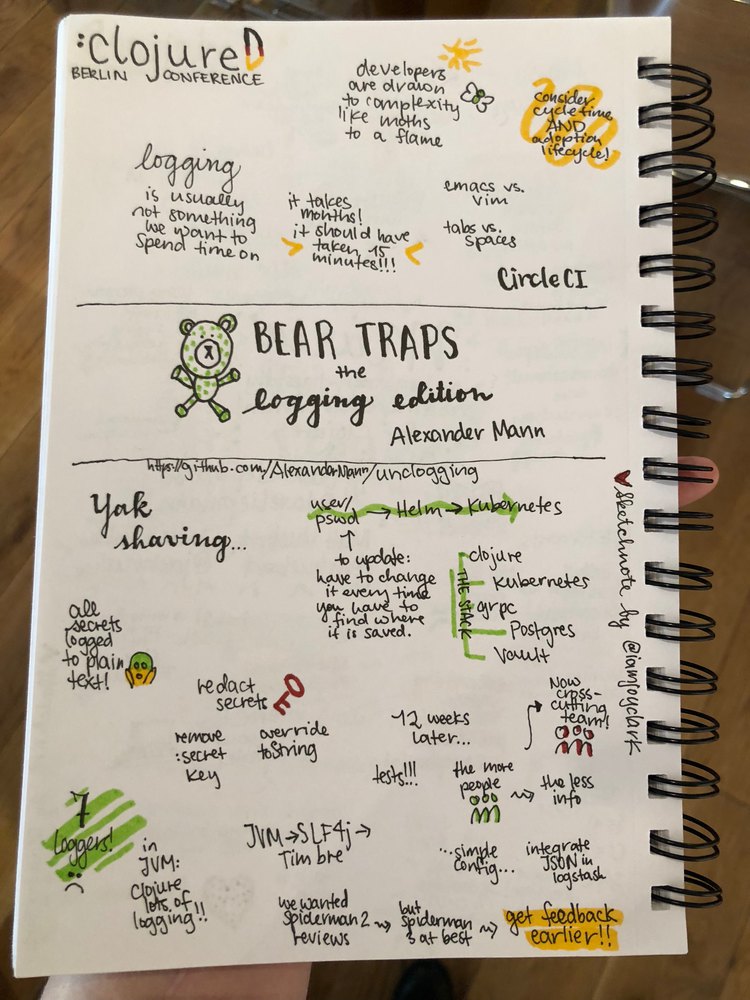 :clojureD
BERLIN CONFERENCE
developers
are drawn
to complexity
like moths
to a flame
consider
cycle time
AND
adoption
lifecycle!
logging
is usually
not something
we want to
spend time on
it takes
months!
it should have
taken 15
minutes!!!
emacs vs.
vim
tabs vs.
spaces
CircleCI
BEAR TRAPS
the
logging edition
Alexander Mann
https://github.com/AlexanderMann/unclogging
Yak
shaving...
user/
pswd → Helm → Kubernetes
to update:
have to change
it every time
you have to
find where
it is saved.
THE STACK
clojure
Kubernetes
grpc
Postgres
Vault
♥ Sketchnote by @iamjoyclark
all
secrets
logged
to plain
text!
redact
secrets
remove
:secret
key
override
toString
12 weeks
later...
Now
cross-
cutting
team!
tests!!!
the more
people
the less
info
7
loggers!
in
JVM:
clojure
lots of
logging!!
JVM → SLF4j →
Timbre
...simple
config...
integrate
JSON in
logstash
we wanted
Spiderman 2
reviews
but
spiderman
3 at best
get feedback
earlier!!